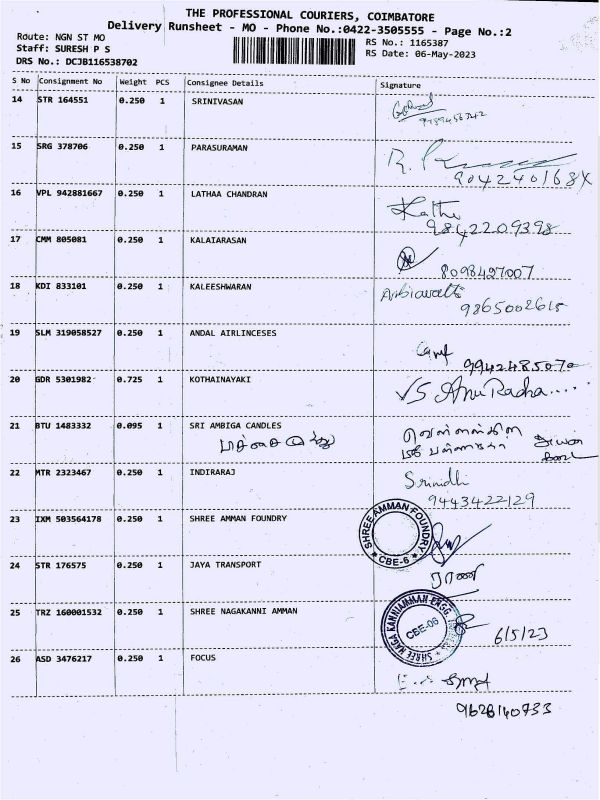 THE PROFESSIONAL COURIERS, COIMBATORE
Delivery Runsheet - MO - Phone No.:0422-3505555 - Page No.:2
Route: NGN ST MO
Staff: SURESH P S
DRS No.: DCJB116538702
RS No.: 1165387
RS Date: 06-May-2023
S No Consignment No Weight PCS Consignee Details Signature
14 STR 164551 0.250 1 SRINIVASAN
15 SRG 378706 0.250 1 PARASURAMAN
16 VPL 942881667 0.250 1 LATHAA CHANDRAN
9842209398
17 CMM 805081 0.250 1 KALAIARASAN
8098427007
18 KDI 833101 0.250 1 KALEESHWARAN
9865002615
19 SLM 319058527 0.250 1 ANDAL AIRLINCESES
9942485070
20 GDR 5301982 0.725 1 KOTHAINAYAKI
VS Anu Radha....
21 BTU 1483332 0.095 1 SRI AMBIGA CANDLES
22 MTR 2323467 0.250 1 INDIRARAJ Srinidhi
9443422129
23 IXM 503564178 0.250 1 SHREE AMMAN FOUNDRY
SHREE AMMAN FOUNDRY
CBE-6
24 STR 176575 0.250 1 JAYA TRANSPORT
25 TRZ 160001532 0.250 1 SHREE NAGAKANNI AMMAN
SHREE NAGA KANNIAMMAN ENGG.
CBE-06
6/5/23
26 ASD 3476217 0.250 1 FOCUS
9628140733